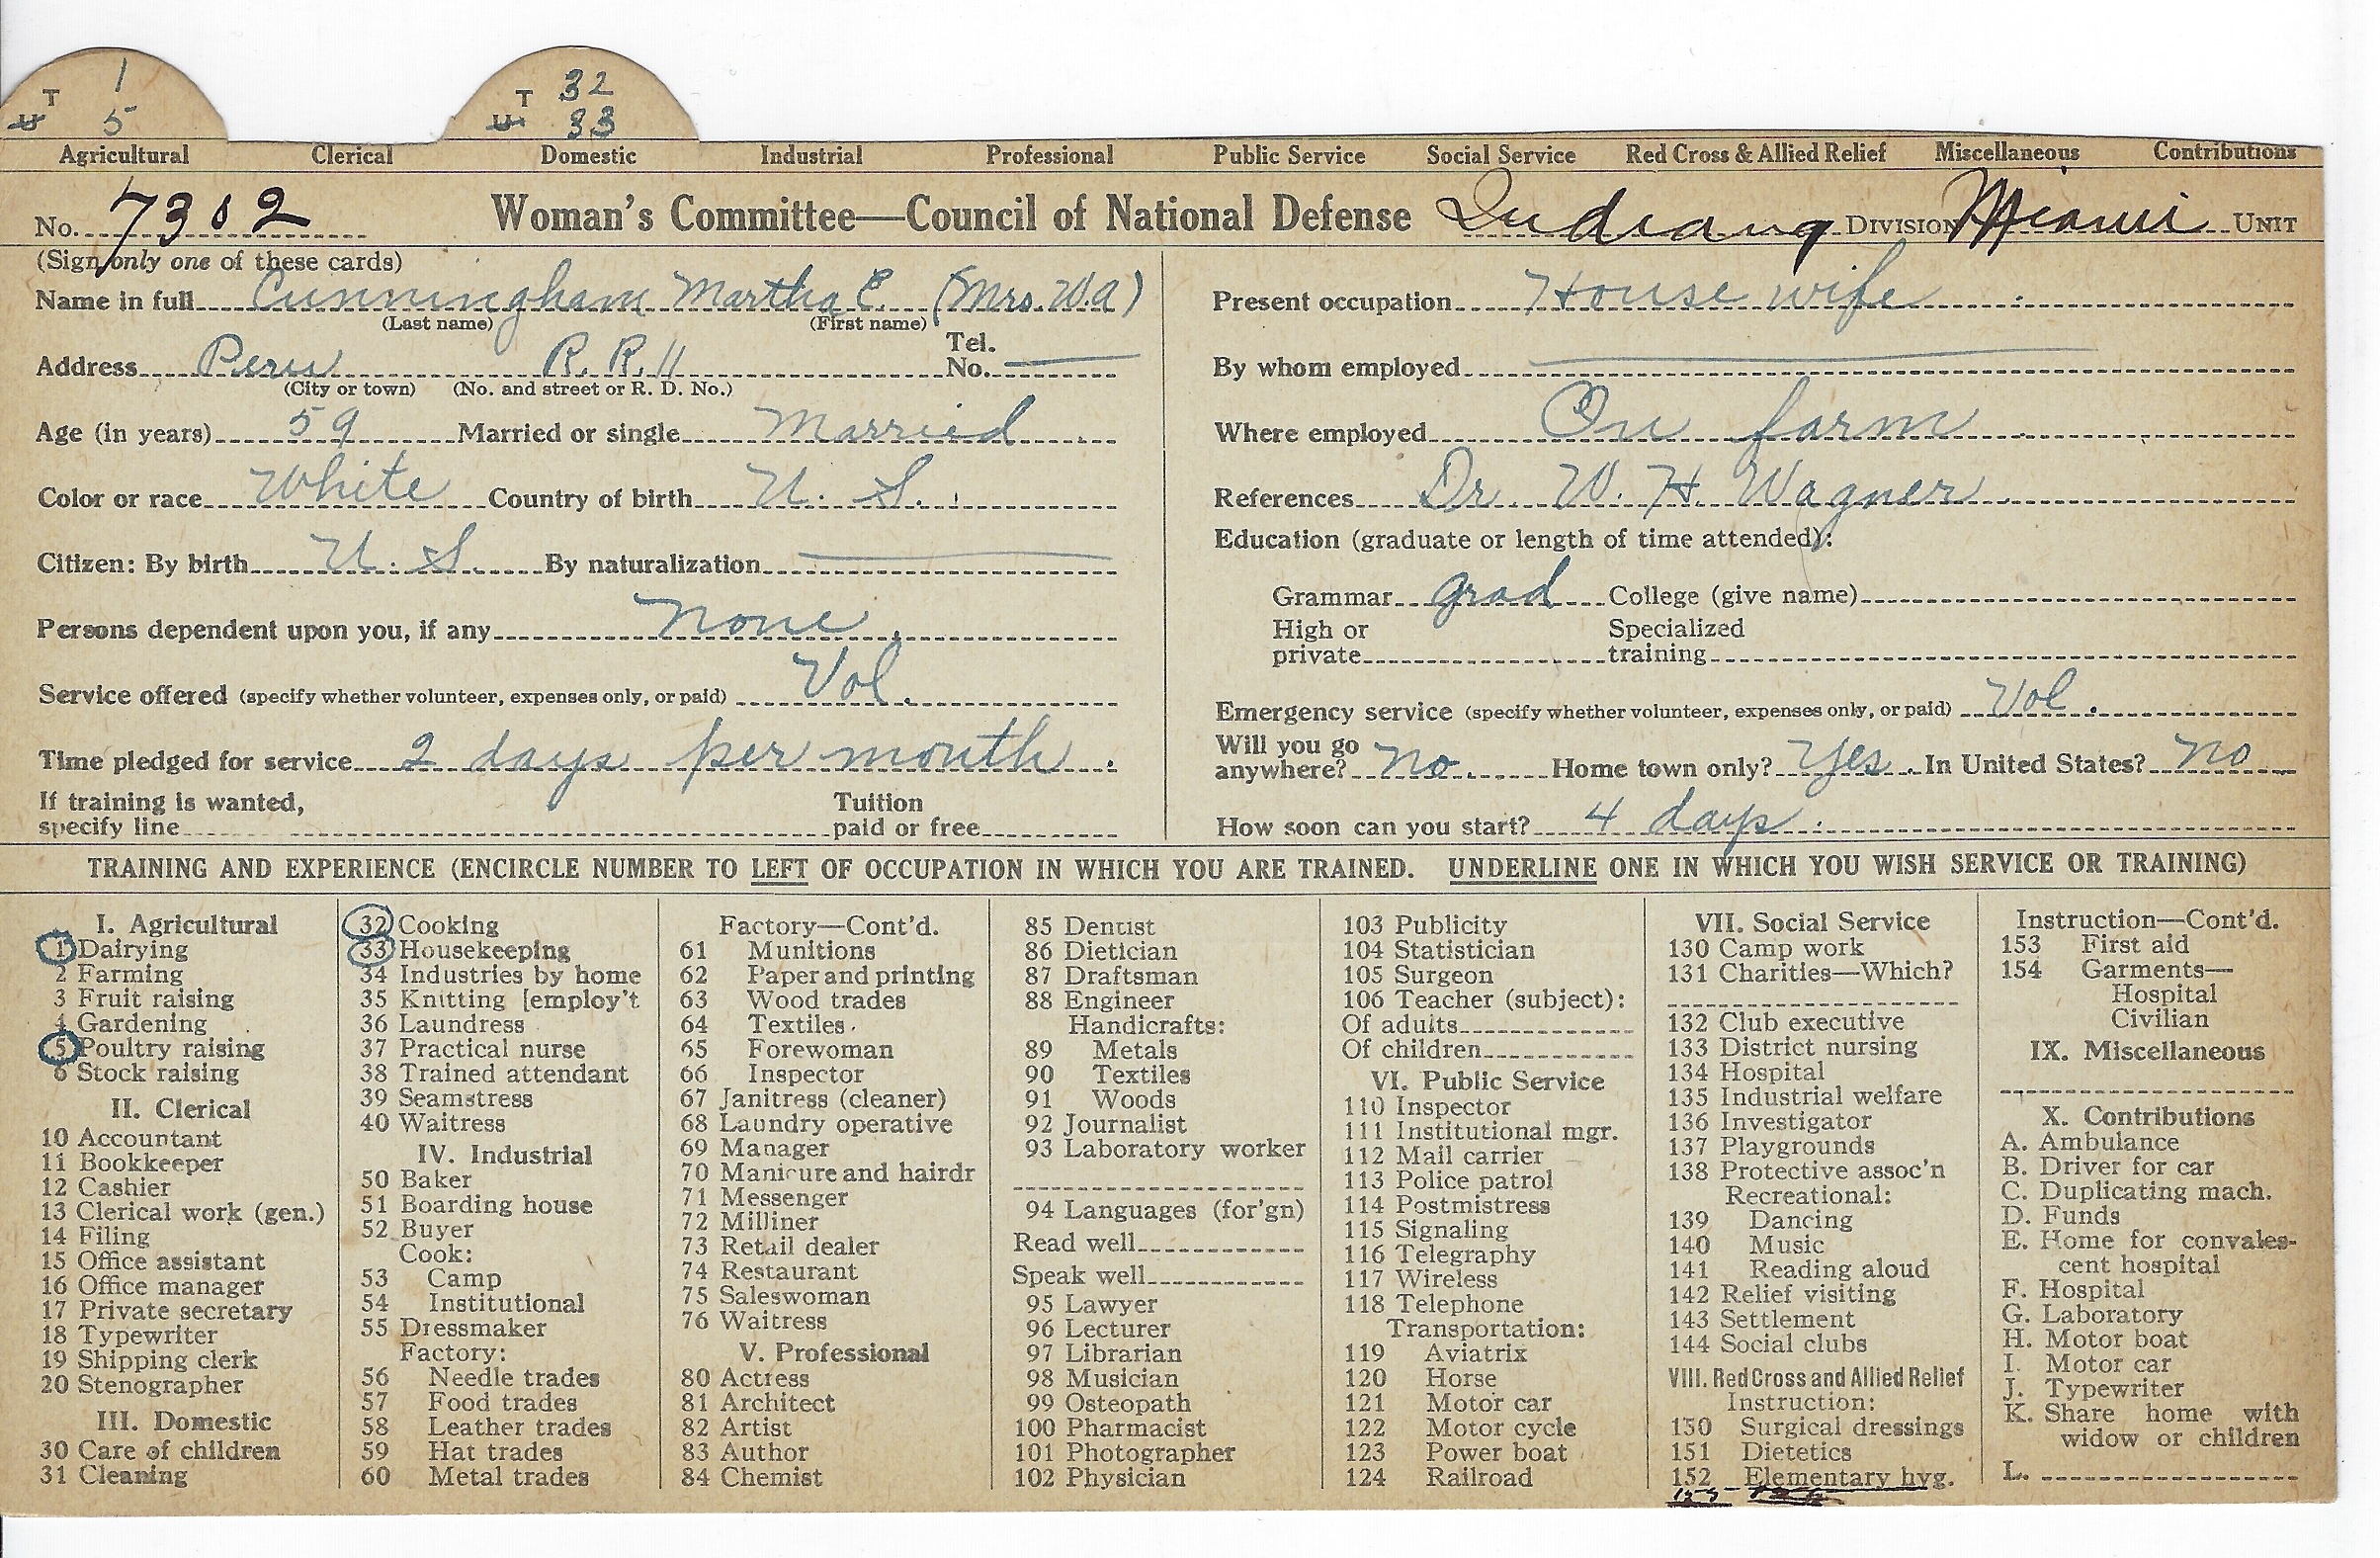 1
T 5
U
T 32
U 33
Agricultural Clerical Domestic Industrial Professional Public Service Social Service Red Cross & Allied Relief Miscellaneous Contributions
No. 7302 Woman's Committee—Council of National Defense Indiana DIVISION Miami UNIT
(Sign only one of these cards)
Name in full Cunningham Martha E. (Mrs. W.A)
(Last name) (First name)
Address Peru R. R. 11 Tel. No.
(City or town) (No. and street or R. D. No.)
Age (in years) 59 Married or single Married
Color or race White Country of birth U. S.
Citizen: By birth U. S. By naturalization
Persons dependent upon you, if any none
Service offered (specify whether volunteer, expenses only, or paid) Vol.
Time pledged for service 2 days per month.
If training is wanted, specify line Tuition paid or free
Present occupation House wife
By whom employed
Where employed On farm
References Dr. W. H. Wagner
Education (graduate or length of time attended):
Grammar grad College (give name)
High or private Specialized training
Emergency service (specify whether volunteer, expenses only, or paid) Vol.
Will you go anywhere? no. Home town only? Yes. In United States? no
How soon can you start? 4 days.
TRAINING AND EXPERIENCE (ENCIRCLE NUMBER TO LEFT OF OCCUPATION IN WHICH YOU ARE TRAINED. UNDERLINE ONE IN WHICH YOU WISH SERVICE OR TRAINING)
I. Agricultural
1 Dairying
2 Farming
3 Fruit raising
4 Gardening
5 Poultry raising
6 Stock raising
II. Clerical
10 Accountant
11 Bookkeeper
12 Cashier
13 Clerical work (gen.)
14 Filing
15 Office assistant
16 Office manager
17 Private secretary
18 Typewriter
19 Shipping clerk
20 Stenographer
III. Domestic
30 Care of children
31 Cleaning
32 Cooking
33 Housekeeping
34 Industries by home
35 Knitting [employ't
36 Laundress
37 Practical nurse
38 Trained attendant
39 Seamstress
40 Waitress
IV. Industrial
50 Baker
51 Boarding house
52 Buyer
Cook:
53 Camp
54 Institutional
55 Dressmaker
Factory:
56 Needle trades
57 Food trades
58 Leather trades
59 Hat trades
60 Metal trades
Factory—Cont'd.
61 Munitions
62 Paper and printing
63 Wood trades
64 Textiles
65 Forewoman
66 Inspector
67 Janitress (cleaner)
68 Laundry operative
69 Manager
70 Manicure and hairdr
71 Messenger
72 Milliner
73 Retail dealer
74 Restaurant
75 Saleswoman
76 Waitress
V. Professional
80 Actress
81 Architect
82 Artist
83 Author
84 Chemist
85 Dentist
86 Dietician
87 Draftsman
88 Engineer
Handicrafts:
89 Metals
90 Textiles
91 Woods
92 Journalist
93 Laboratory worker
94 Languages (for'gn)
Read well
Speak well
95 Lawyer
96 Lecturer
97 Librarian
98 Musician
99 Osteopath
100 Pharmacist
101 Photographer
102 Physician
103 Publicity
104 Statistician
105 Surgeon
106 Teacher (subject):
Of adults
Of children
VI. Public Service
110 Inspector
111 Institutional mgr.
112 Mail carrier
113 Police patrol
114 Postmistress
115 Signaling
116 Telegraphy
117 Wireless
118 Telephone
Transportation:
119 Aviatrix
120 Horse
121 Motor car
122 Motor cycle
123 Power boat
124 Railroad
VII. Social Service
130 Camp work
131 Charities—Which?
132 Club executive
133 District nursing
134 Hospital
135 Industrial welfare
136 Investigator
137 Playgrounds
138 Protective assoc'n
Recreational:
139 Dancing
140 Music
141 Reading aloud
142 Relief visiting
143 Settlement
144 Social clubs
VIII. Red Cross and Allied Relief
Instruction:
150 Surgical dressings
151 Dietetics
152 Elementary hyg.
Instruction—Cont'd.
153 First aid
154 Garments—
Hospital
Civilian
IX. Miscellaneous
X. Contributions
A. Ambulance
B. Driver for car
C. Duplicating mach.
D. Funds
E. Home for convales-
cent hospital
F. Hospital
G. Laboratory
H. Motor boat
I. Motor car
J. Typewriter
K. Share home with
widow or children
L.